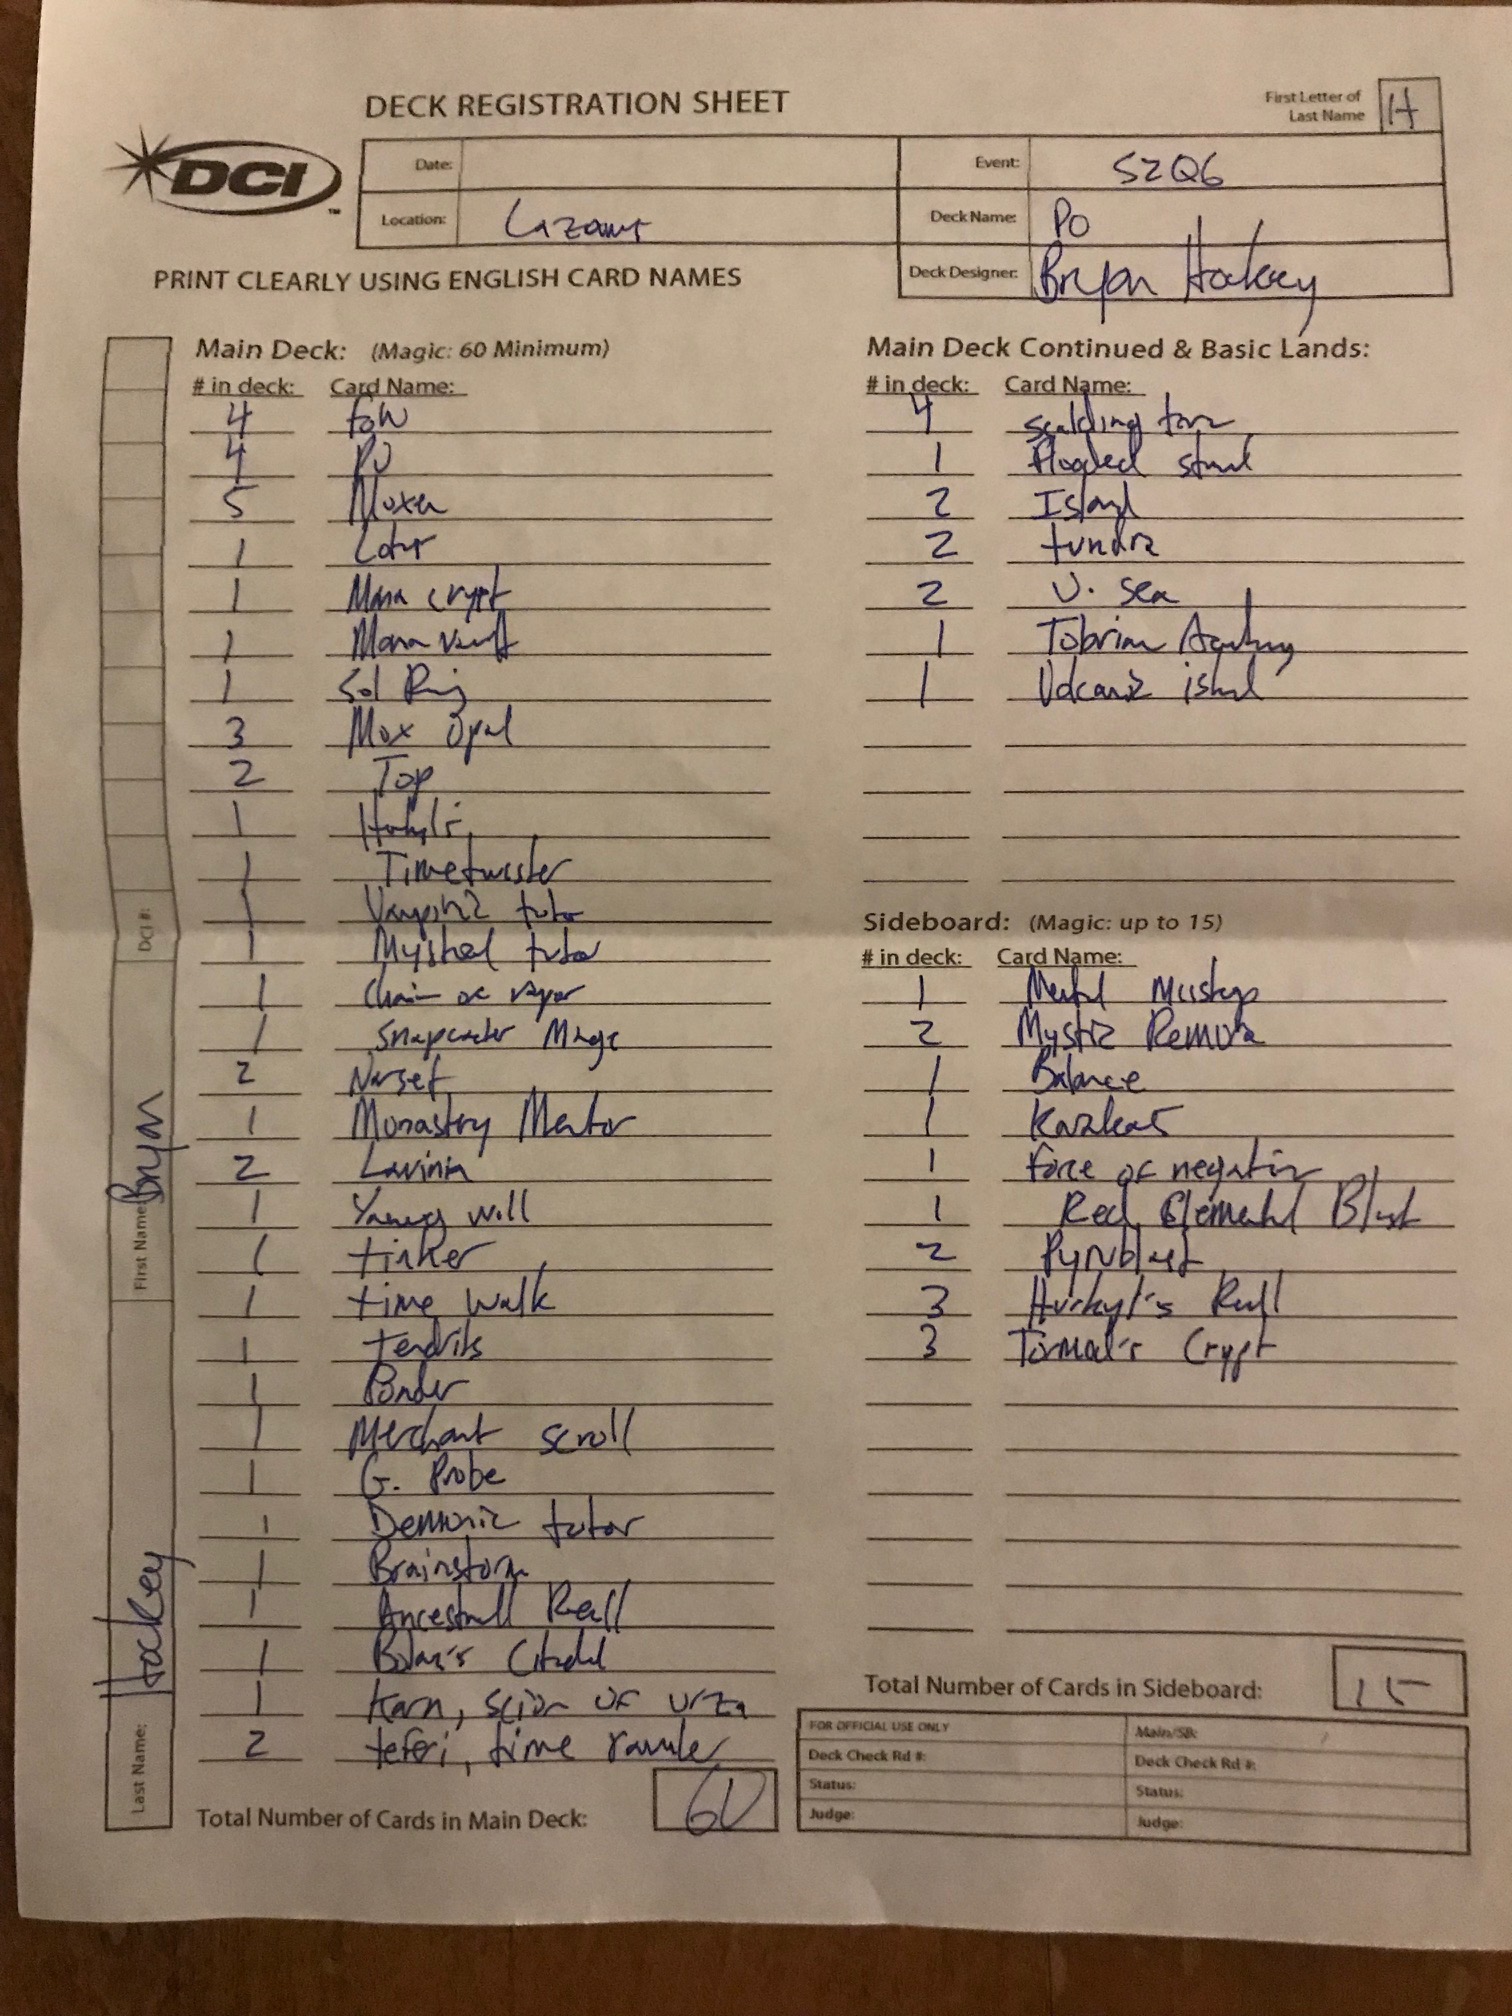 DECK REGISTRATION SHEET
First Letter of
Last Name H
DCI
Date:
Event: SZQ6
Location:
Deck Name: PO
Deck Designer: Bryan Hockey
PRINT CLEARLY USING ENGLISH CARD NAMES
Main Deck: (Magic: 60 Minimum)
# in deck: Card Name:
4 FoW
4 PO
5 Moxen
1 Lotus
1 Mana crypt
1 Mana vault
1 Sol Ring
3 Mox Opal
2 Top
1 Hurkyl's
1 Timetwister
1 Vampiric tutor
1 Mystical tutor
1 Chain of vapor
1 Snapcaster Mage
2 Narset
1 Monastery Mentor
2 Lavinia
1 will
1 tinker
1 time walk
1 tendrils
1 Ponder
1 Merchant scroll
1 G. Probe
1 Demonic tutor
1 Brainstorm
1 Ancestral Recall
1 Bolas's Citadel
1 karn, scion of urza
2 teferi, time raveler
Total Number of Cards in Main Deck: 60
Main Deck Continued & Basic Lands:
# in deck: Card Name:
4 scalding tarn
1 flooded strand
2 Island
2 tundra
2 U. Sea
1 Tolarian Academy
1 Volcanic island
Sideboard: (Magic: up to 15)
# in deck: Card Name:
1 Mental Misstep
2 Mystic Remora
1 Balance
1 Karakas
1 force of negation
1 Red Elemental Blast
2 Pyroblast
3 Hurkyl's Recall
3 Tormod's Crypt
Total Number of Cards in Sideboard: 15
FOR OFFICIAL USE ONLY
Main/SB:
Deck Check Rd #:
Deck Check Rd #:
Status:
Status:
Judge:
Judge:
DCI #:
First Name: Bryan
Last Name: Hockey